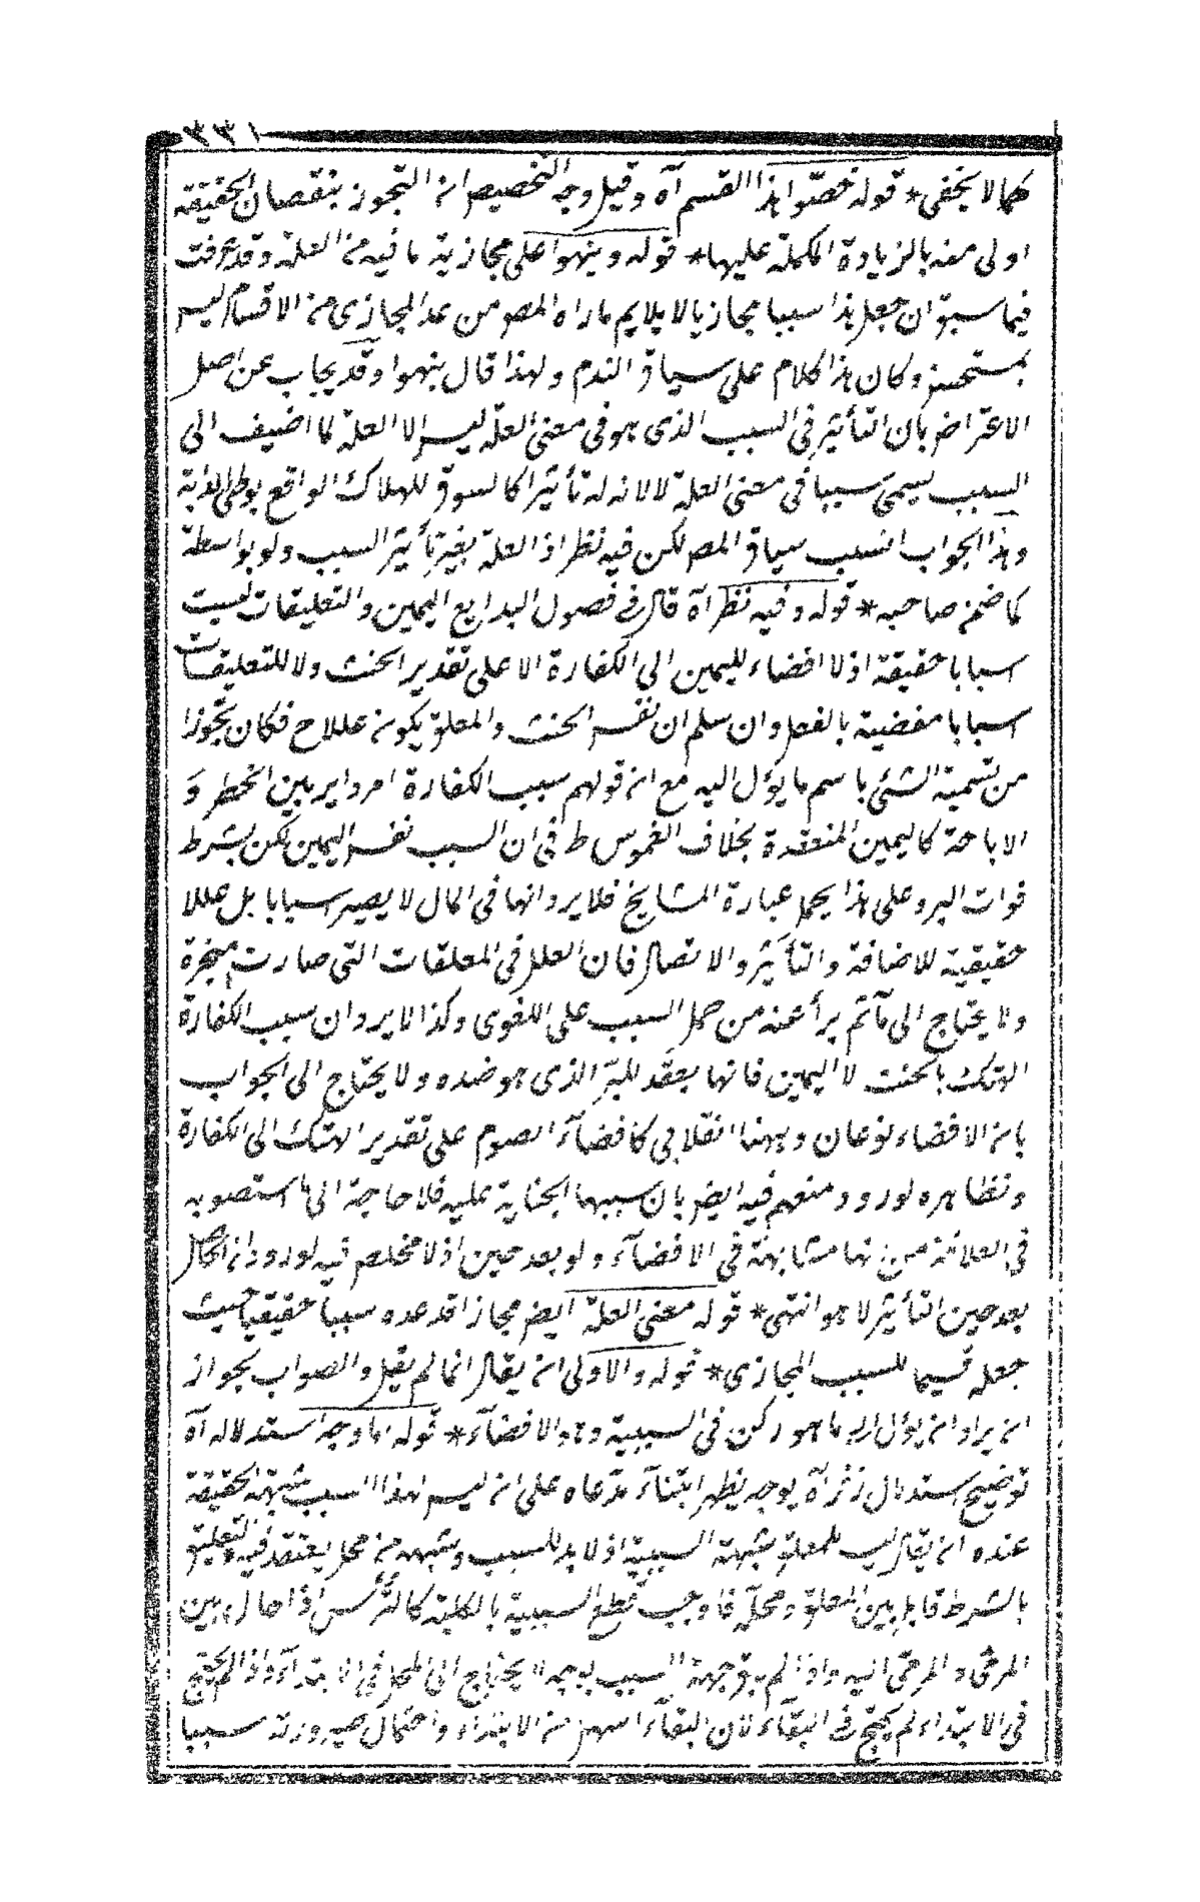 ٣٣١
كما لا يخفى * قوله خصّوا هذا القسم آه وقيل وجه التخصيص ان التجوز بنقصان الحقيقة
اولى منه بالزيادة المكملة عليها * قوله وينهوا على مجازية ما فيه من العلة وقد عرفت
فيما سبق ان جعل هذا سببا مجازيا لا يلايم ما راه المص من عد المجازى من الاقسام ليس
بمستحسن وكان هذا الكلام على سياق الندم ولهذا قال ينهوا وقد يجاب عن اصل
الاعتراض بان التأثير فى السبب الذى هو فى معنى العلة ليس الا العلة لما اضيف الى
السبب ليسمى سببا فى معنى العلة لا لانه له تأثيرا كالسوق للهلاك الواقع بوطى الدابة
وهذا الجواب انسب سياق المص لكن فيه نظر اذ العلة بغير تأثير السبب ولو بواسطة
كما ضمن صاحبه * قوله وفيه نظر آه قال فى فصول البدايع اليمين والتعليقات ليست
اسبابا حقيقة اذ لا افضاء لليمين الى الكفارة الا على تقدير الحنث ولا للتعليقات
اسبابا مفضية بالفعل وان سلم ان نفس الحنث والمعلق يكونن عللا ح فكان تجوزا
من تسمية الشئ باسم ما يؤل اليه مع ان قولهم سبب الكفارة امر داير بين الخطر و
الاباحة كاليمين المنعقدة بخلاف الغموس ط فى ان السبب نفس اليمين لكن بشرط
فوات البر وعلى هذا يحمل عبارة المشايخ فلا يرد انها فى المال لا يصير اسبابا بل عللا
حقيقية للاضافة والتأثير والاتصال فان العلل فى المعلقات التى صارت منجزة
ولا يحتاج الى مآثم برأ عنه من حمل السبب على اللغوى وكذا لا يرد ان سبب الكفارة
الهتك بالحنث لا اليمين فانها يعقد للبر الذى هو ضده ولا يحتاج الى الجواب
بان الافضاء نوعان وههنا انقلابى كافضآء الصوم على تقدير الهتك الى الكفارة
ونظايره لورود منعهم فيه ايض بان سببها الجناية عليه فلا حاجة الى ما استصوبه
فى العلاقة من انها مشابهة فى الافضآء ولو بعد حين اذ لا مخلص فيه لورود ان الحاصل
بعد حين التأثير لا هو انتهى * قوله معنى العلة ايض مجازا قد عده سببا حقيقيا حيث
جعله قسيما للسبب المجازى * قوله والاولى ان يقال انما لم يقل والصواب بجواز
ان يراد ان يؤل اليه ما هو ركن فى السببية وهو الافضآء * قوله ما وجه استدلاله آه
توضيح استدلال زفر آه بوجه يظهر ابتنآء مدعاه على ان ليس لهذا السبب شبهة الحقيقة
عنده ان يقال ليس للمعلق شبهة السببية اذ لا بد للسبب وشبهه من محل يعتقد فيه والتعليق
بالشرط قابل بين المعلق ومحله فاوجب قطع السببية بالكلية كالترس اذا حال بين
المرمى والمرمى اليه واذا لم يبق جهة السبب بوجه لا يحتاج الى المحل فى الابتدآء واذا لم يحتج
فى الابتداء لم يحتج فى البقآء لان البقآء اسهل من الابتداء واحتمال صيرورته سببا